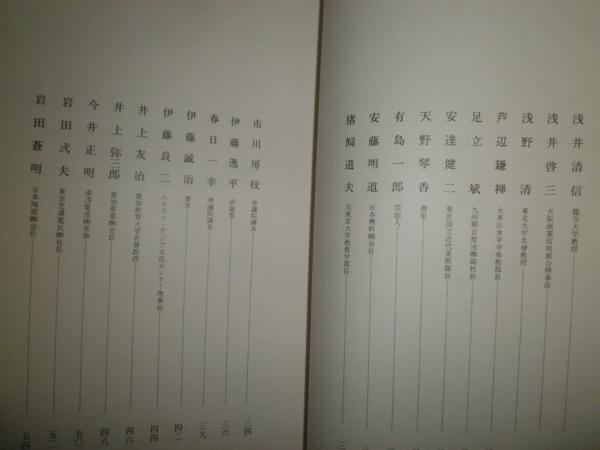 浅井清信 龍谷大学教授
浅井啓三 大阪商業信用組合理事長
浅野清 東北大学名誉教授
芦辺鎌禅 大本山永平寺布教部長
足立斌 九州朝日放送㈱副社長
安達健二 東京国立近代美術館長
天野琴香 書家
有島一郎 芸能人
安藤明道 日本燃料㈱会長
猪飼道夫 元東京大学教育学部長
市川房枝 参議院議員 三四
伊藤逸平 評論家 三六
春日一幸 衆議院議員 三九
伊藤誠治 書家 四二
伊藤良二 ユネスコ・アジア文化センター理事長 四四
井上友治 愛知教育大学名誉教授 四六
井上弥三郎 愛知産業㈱会長 四八
今井正明 湯浅電池㈱常務 五〇
岩田弍夫 東京芝浦電気㈱社長 五二
岩田蒼明 日本陶器㈱会長 五四